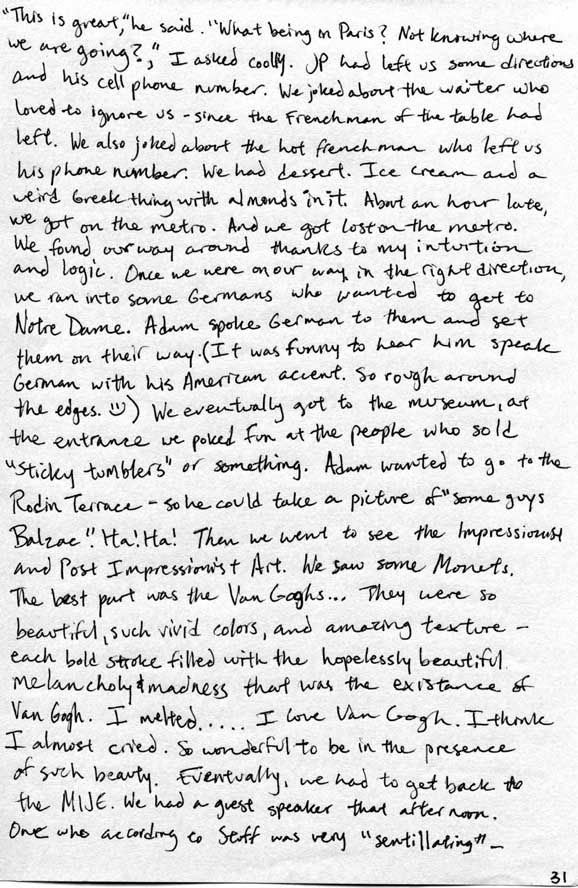 "This is great," he said. "What being in Paris? Not knowing where
we are going?," I asked coolly. JP had left us some directions
and his cell phone number. We joked about the waiter who
loved to ignore us - since the Frenchman of the table had
left. We also joked about the hot frenchman who left us
his phone number. We had dessert. Ice cream and a
weird Greek thing with almonds in it. About an hour late,
we got on the metro. And we got lost on the metro.
We found our way around thanks to my intuition
and logic. Once we were on our way in the right direction,
we ran into some Germans who wanted to get to
Notre Dame. Adam spoke German to them and set
them on their way. (It was funny to hear him speak
German with his American accent. So rough around
the edges. ☺) We eventually got to the museum, at
the entrance we poked fun at the people who sold
"sticky tumblers" or something. Adam wanted to go to the
Rodin Terrace - so he could take a picture of "some guys
Balzac". Ha! Ha! Then we went to see the Impressionist
and Post Impressionist Art. We saw some Monets.
The best part was the Van Goghs... They were so
beautiful, such vivid colors, and amazing texture -
each bold stroke filled with the hopelessly beautiful
melancholy & madness that was the existance of
Van Gogh. I melted..... I love Van Gogh. I think
I almost cried. So wonderful to be in the presence
of such beauty. Eventually, we had to get back to
the MIJE. We had a guest speaker that afternoon.
One who according to Staff was very "sentillating" -
31